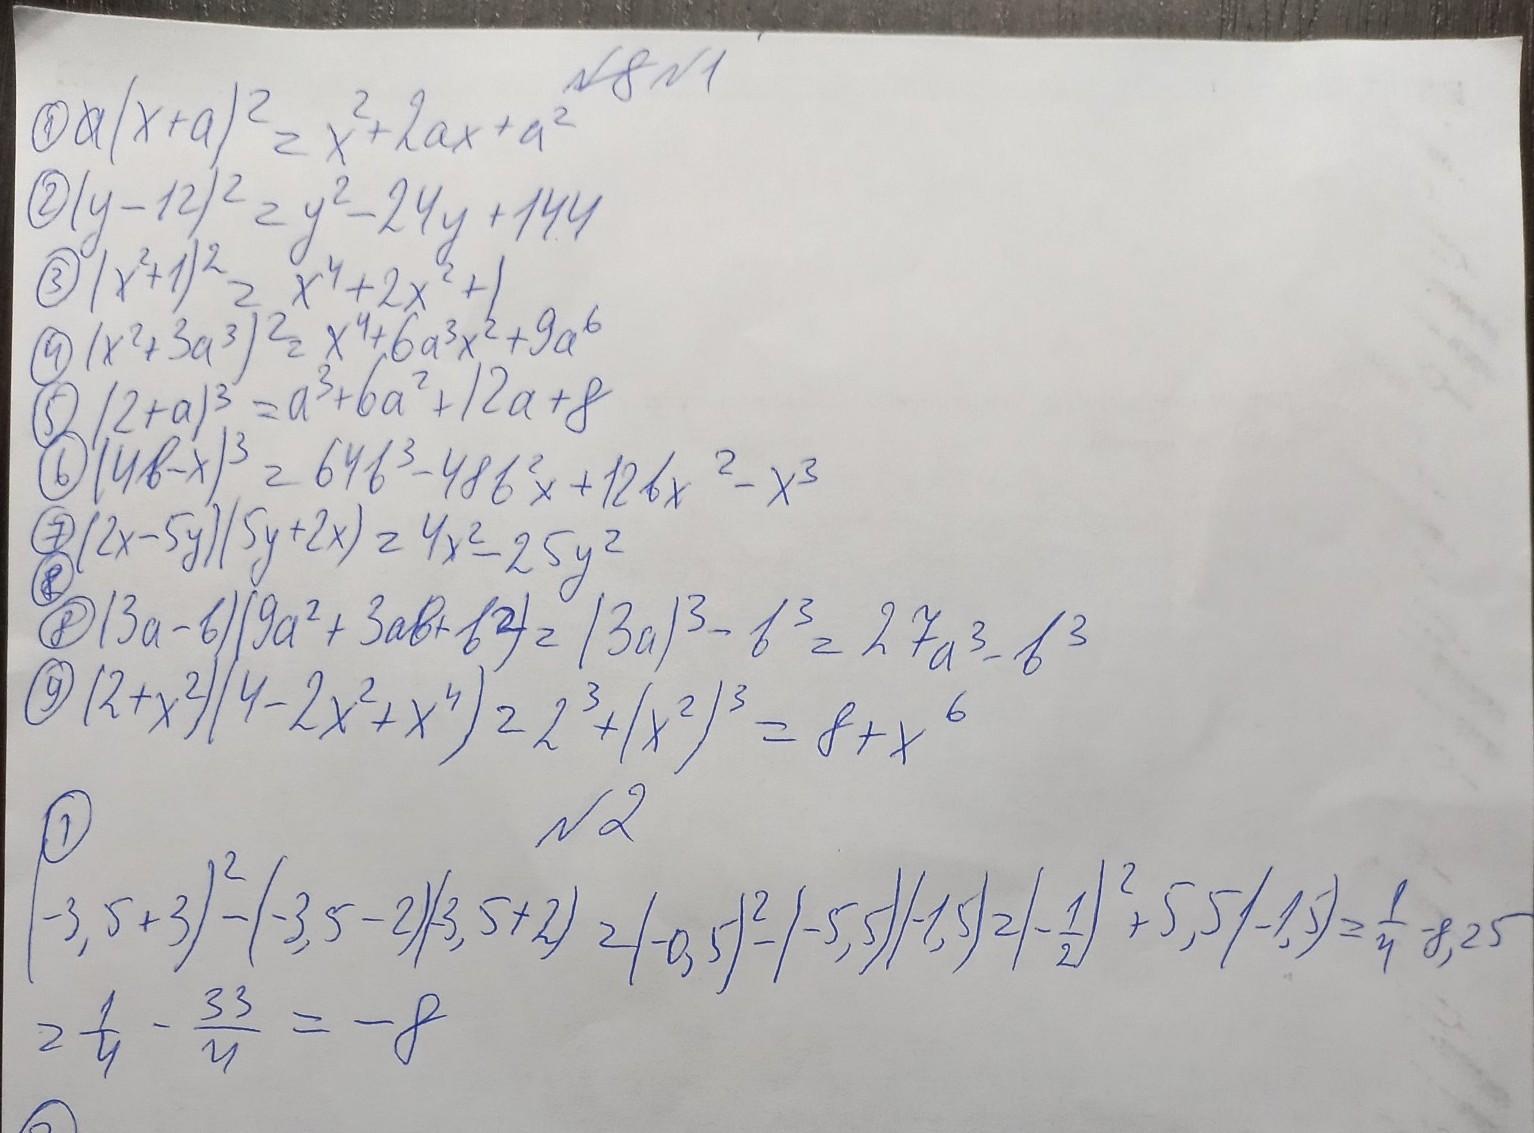 №8 №1
① (x+a)² = x²+2ax+a²
② (y-12)² = y²-24y+144
③ (x²+1)² = x⁴+2x²+1
④ (x²+3a³)² = x⁴+6a³x²+9a⁶
⑤ (2+a)³ = a³+6a²+12a+8
⑥ (4b-x)³ = 64b³-48b²x+12bx²-x³
⑦ (2x-5y)(5y+2x) = 4x²-25y²
⑧
⑧ (3a-b)(9a²+3ab+b²) = (3a)³-b³ = 27a³-b³
⑨ (2+x²)(4-2x²+x⁴) = 2³+(x²)³ = 8+x⁶
№2
①
(-3,5+3)²-(-3,5-2)(-3,5+2) = (-0,5)²-(-5,5)(-1,5) = (-1/2)²+5,5(-1,5) = 1/4-8,25
= 1/4 - 33/4 = -8